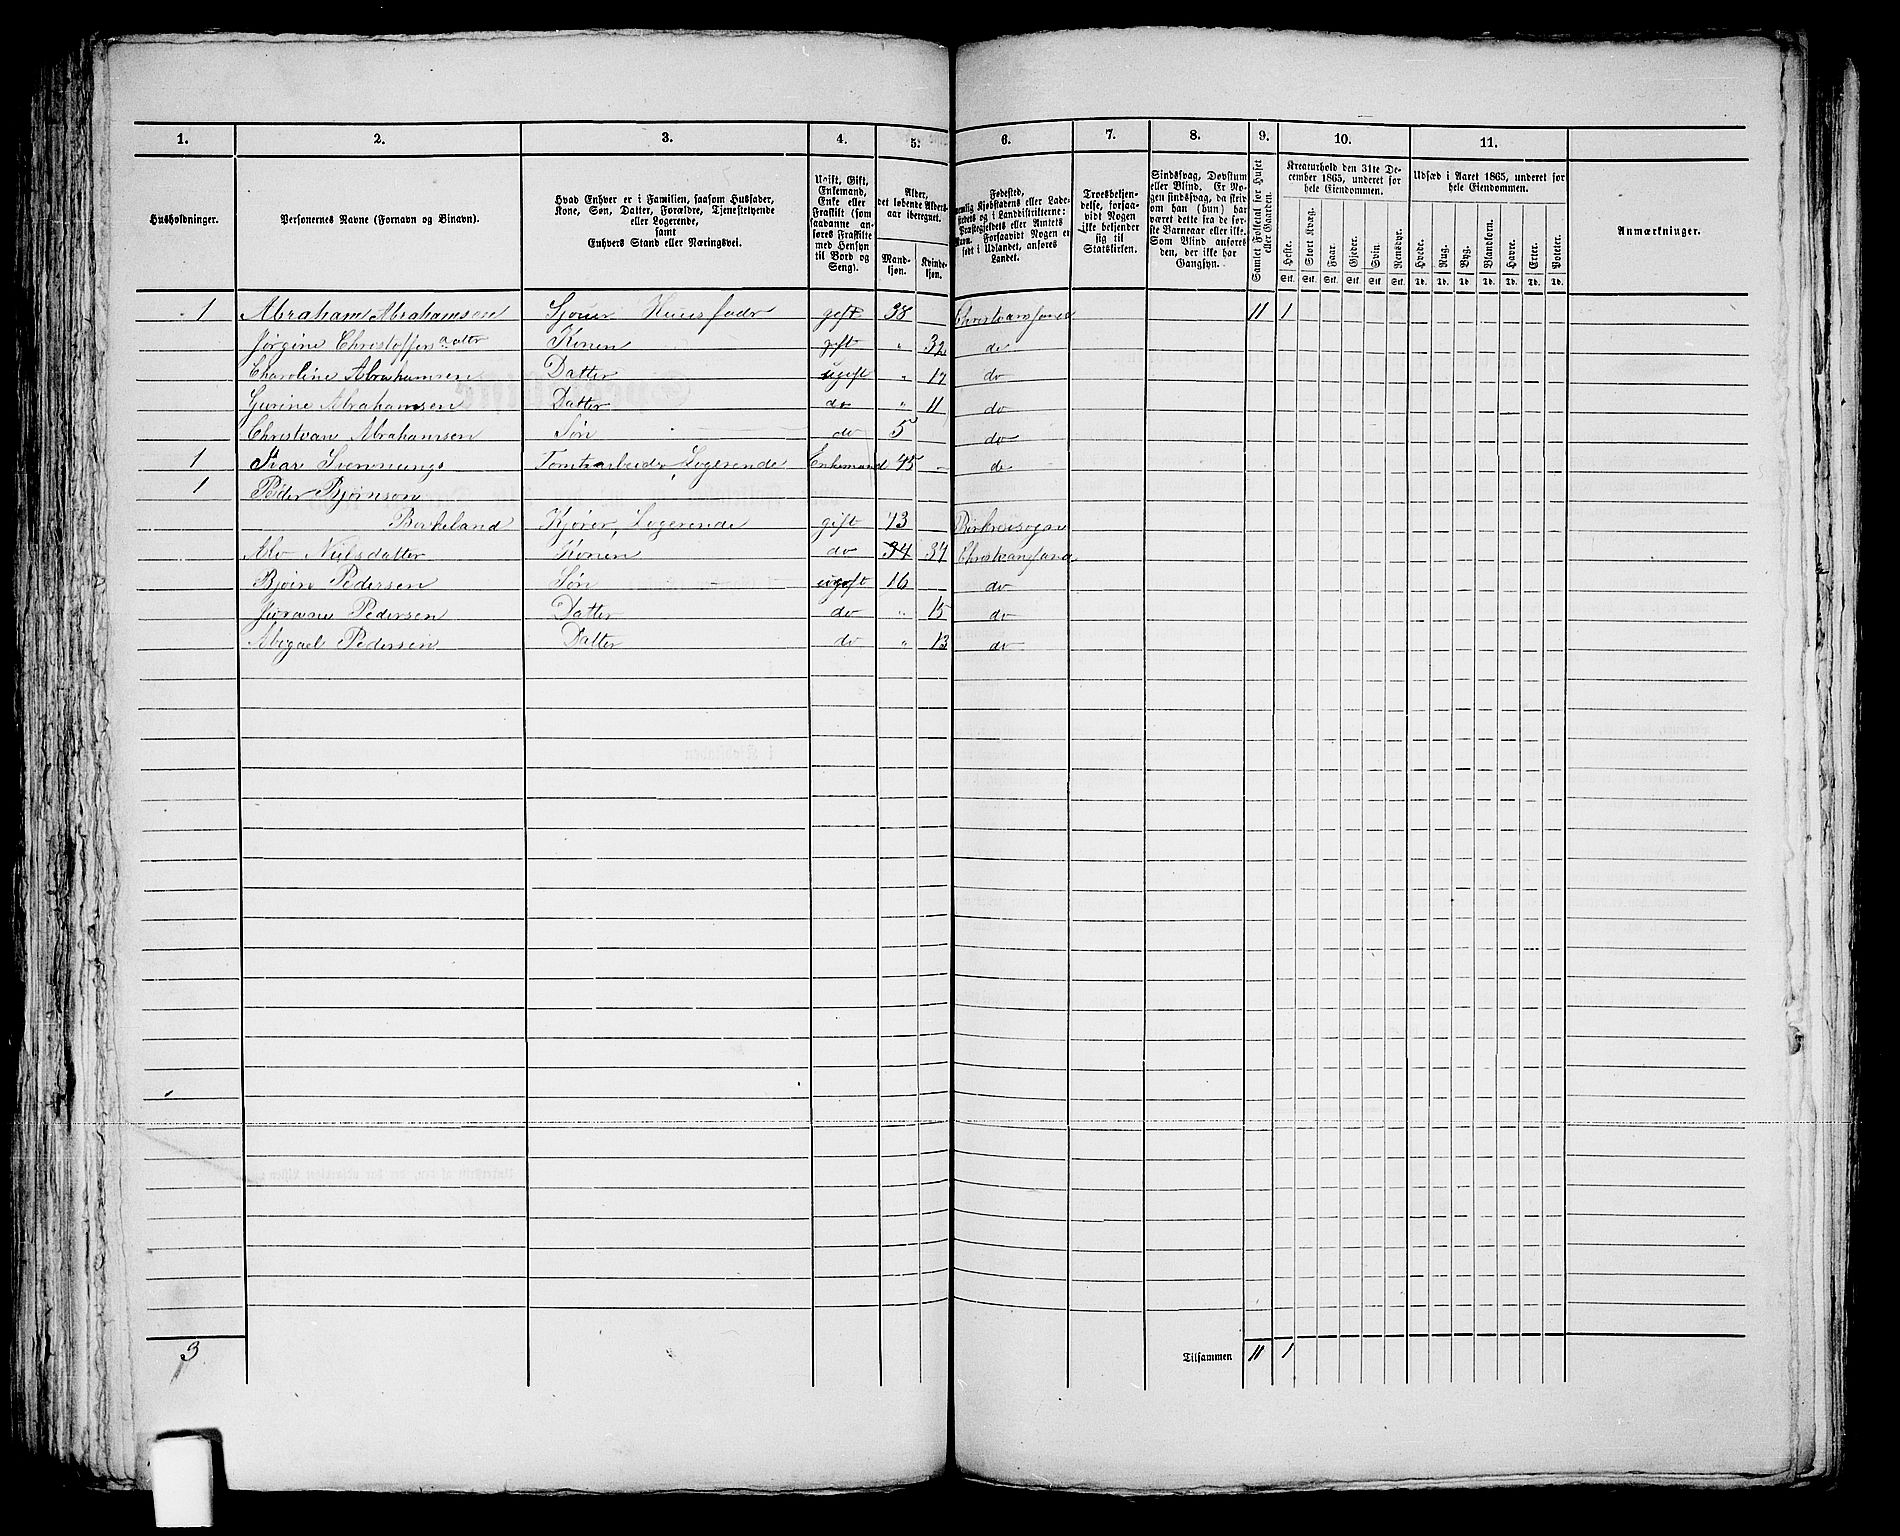 1. 2. 3. 4. 5. 6. 7. 8. 9. 10. 11.
Husholdninger.
Personernes Navne (Fornavn og Binavn).
Hvad Enhver er i Familien, saasom Husfader,
Kone, Søn, Datter, Forældre, Tjenestetyende
eller Logerende,
samt
Enhvers Stand eller Næringsvei.
Ugift, Gift,
Enkemand,
Enke eller
Fraskilt (som
saadanne an-
føres Fraskilte
med Hensyn
til Bord og
Seng).
Alder,
det løbende Alders-
aar iberegnet.
Mand-
kjøn.
Kvinde-
kjøn.
Fødested,
nemlig Kjøbstadens eller Lade-
stedets og i Landdistrikterne:
Præstegjeldets eller Amtets
Navn. Forsaavidt Nogen er
født i Udlandet, anføres
Landet.
Troesbekjen-
delse, forsaa-
vidt Nogen
ikke bekjender
sig til
Statskirken.
Sindssvag, Døvstum
eller Blind. Er No-
gen sindssvag, da skriv
om han (hun) har
været dette fra de før-
ste Barneaar eller ikke.
Som Blind anføres
den, der ikke har
Gangsyn.
Samlet Folketal for Huset
eller Gaarden.
Kreaturhold den 31te De-
cember 1865, underet for
hele Eiendommen.
Heste. Stort Kvæg. Faar. Gjeder. Svin. Rensdyr.
Stk. Stk. Stk. Stk. Stk. Stk.
Udsæd i Aaret 1865, underet for
hele Eiendommen.
Hvede. Rug. Byg. Blandkorn. Havre. Erter. Poteter.
Td. Td. Td. Td. Td. Td. Td.
Anmærkninger.
1 Abraham Abrahamsen Sjouer Huusfader gift 38 Christiansand 11 1
Jørgine Christoffersdatter Konen gift " 32 do
Charoline Abrahamsen Datter ugift " 17 do
Gurine Abrahamsen Datter do " 11 do
Christian Abrahamsen Søn do 5 do
1 Svennungs Tomtearbeider, Logerende Enkemand 45 do
1 Peder Bjørnsen
Birkeland Kjører, Logerende gift 43 Birkreisogn
Nielsdatter Konen do 34 34 Christiansand
Bjørn Pedersen Søn ugift 16 do
Pedersen Datter do " 15 do
Abigael Pedersen Datter do " 13 do
3 Tilsammen 11 1